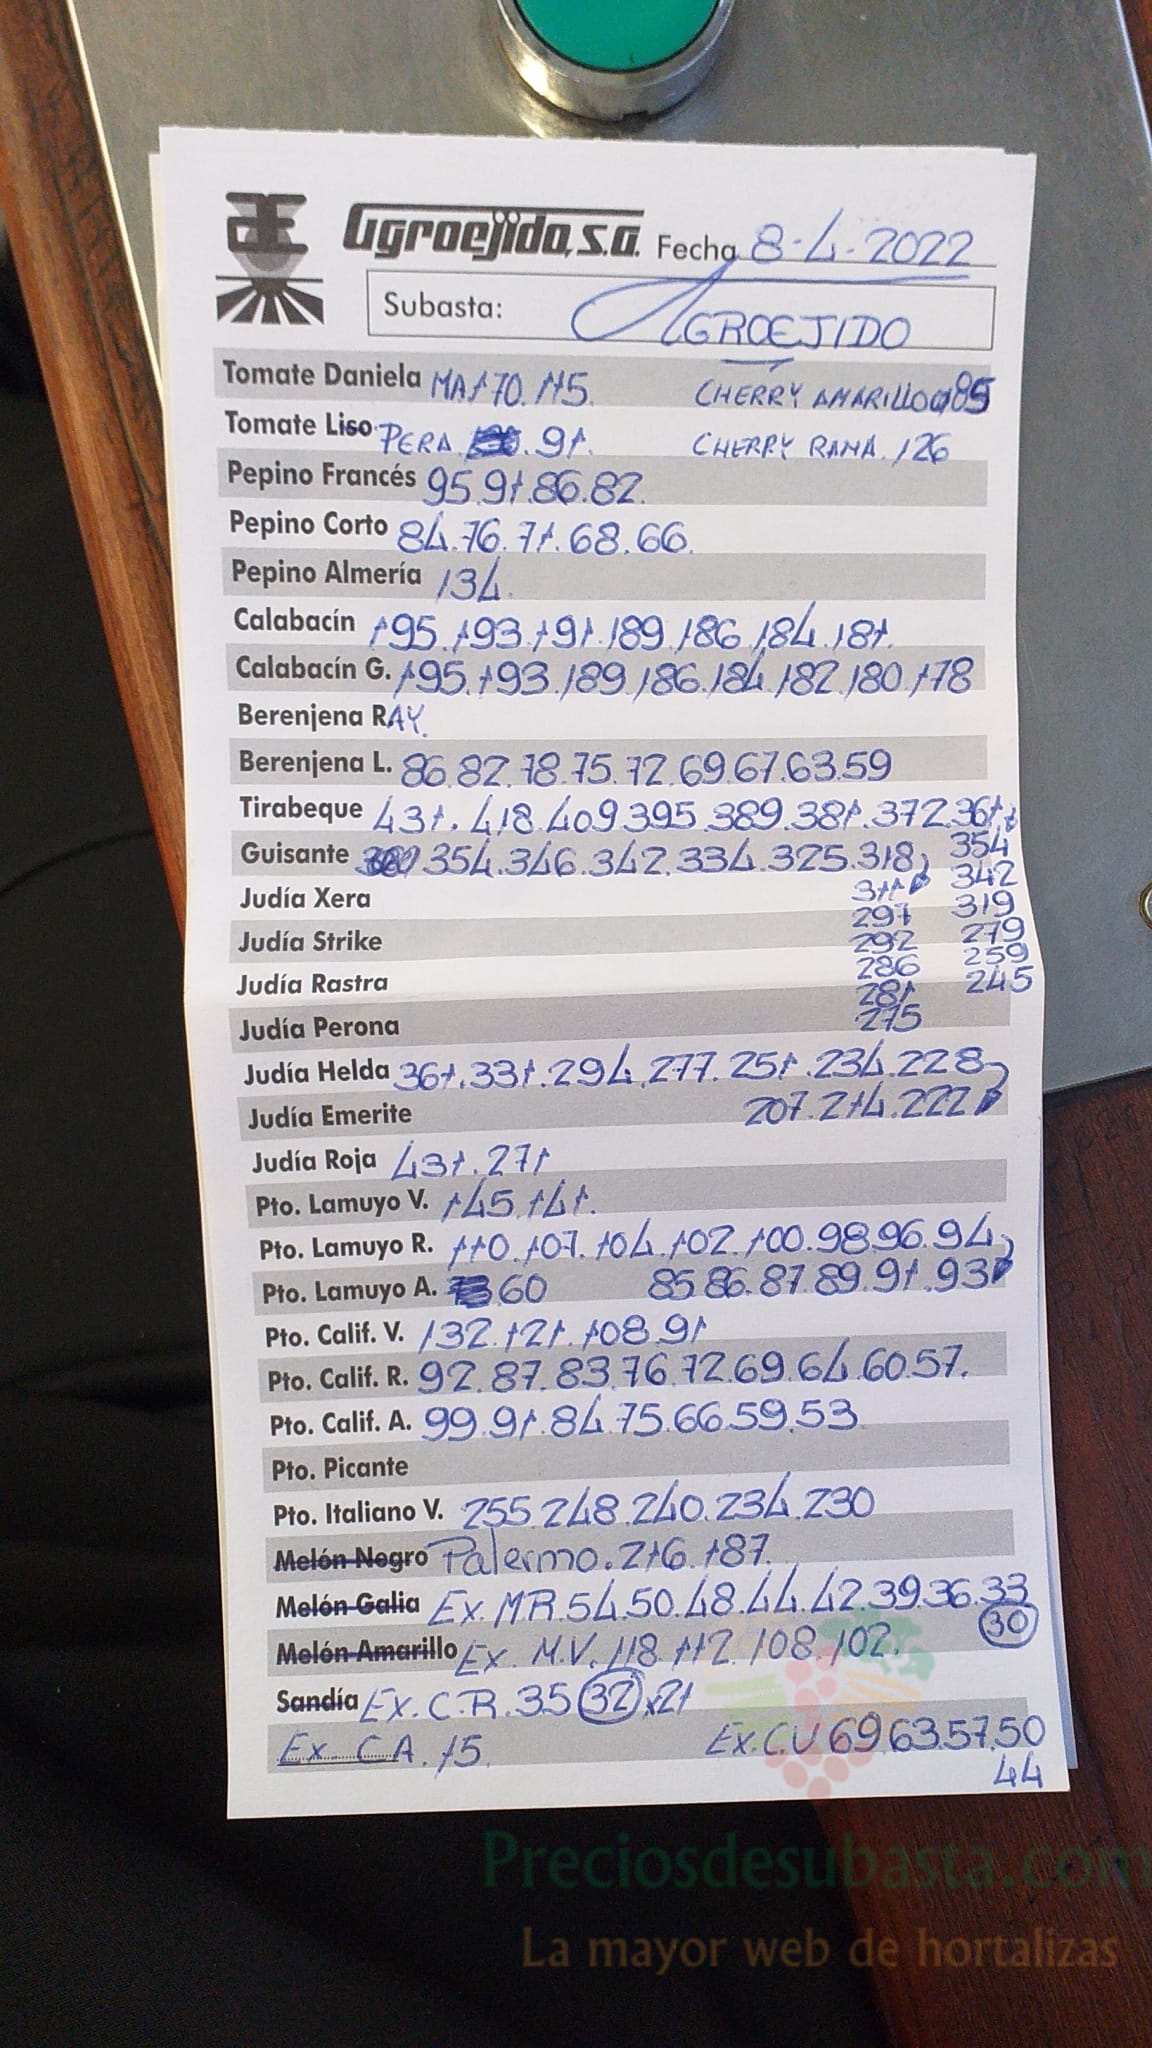 Agroejido, S.A. Fecha 8-4-2022
Subasta: AGROEJIDO
Tomate Daniela MA 170. 115. CHERRY AMARILLO 185
Tomate Liso PERA 91. CHERRY RAMA. 126
Pepino Francés 95.91.86.82.
Pepino Corto 84.76.71.68.66.
Pepino Almería 134.
Calabacín 195.193.191.189.186.184.181.
Calabacín G. 195.193.189.186.184.182.180.178
Berenjena RAY.
Berenjena L. 86.82.78.75.72.69.67.63.59
Tirabeque 431.418.409.395.389.381.372.361
354
Guisante 354.346.342.334.325.318
311 342
Judía Xera 297 319
Judía Strike 292 279
286 259
Judía Rastra 281 245
Judía Perona 275
Judía Helda 361.331.294.277.251.234.228
Judía Emerite 207.214.222
Judía Roja 431.271
Pto. Lamuyo V. 145.141.
Pto. Lamuyo R. 110.107.104.102.100.98.96.94
Pto. Lamuyo A. 60 85.86.87.89.91.93
Pto. Calif. V. 132.121.108.91
Pto. Calif. R. 92.87.83.76.72.69.64.60.57.
Pto. Calif. A. 99.91.84.75.66.59.53
Pto. Picante
Pto. Italiano V. 255.248.240.234.230
Melón Negro Palermo.216.187.
Melón Galia Ex. MR.54.50.48.44.42.39.36.33
30
Melón Amarillo Ex. M.V. 118.112.108.102.
Sandía Ex. C.R. 35 32 x21
Ex. CA. 15. Ex.CU 69.63.57.50
44
Preciosdesubasta.com
La mayor web de hortalizas